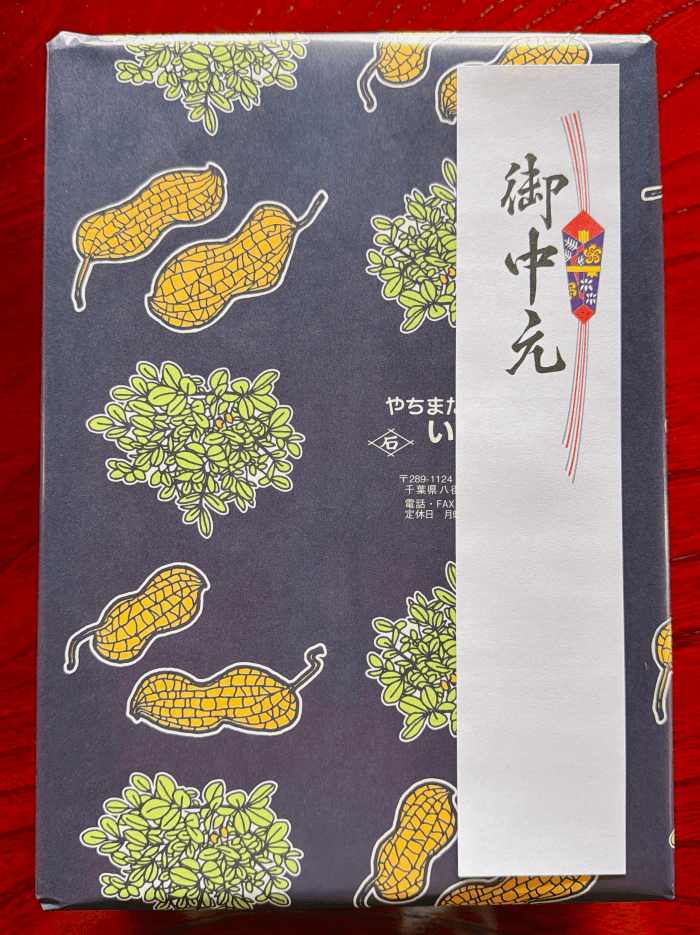 御中元
やちまた
い
石
〒289-1124
千葉県八街
電話・FAX
定休日 月